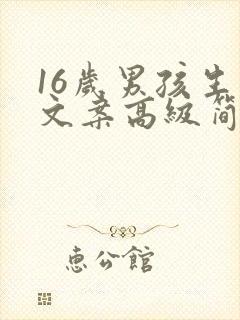 16歲男孩生
文案高級简
惠公館